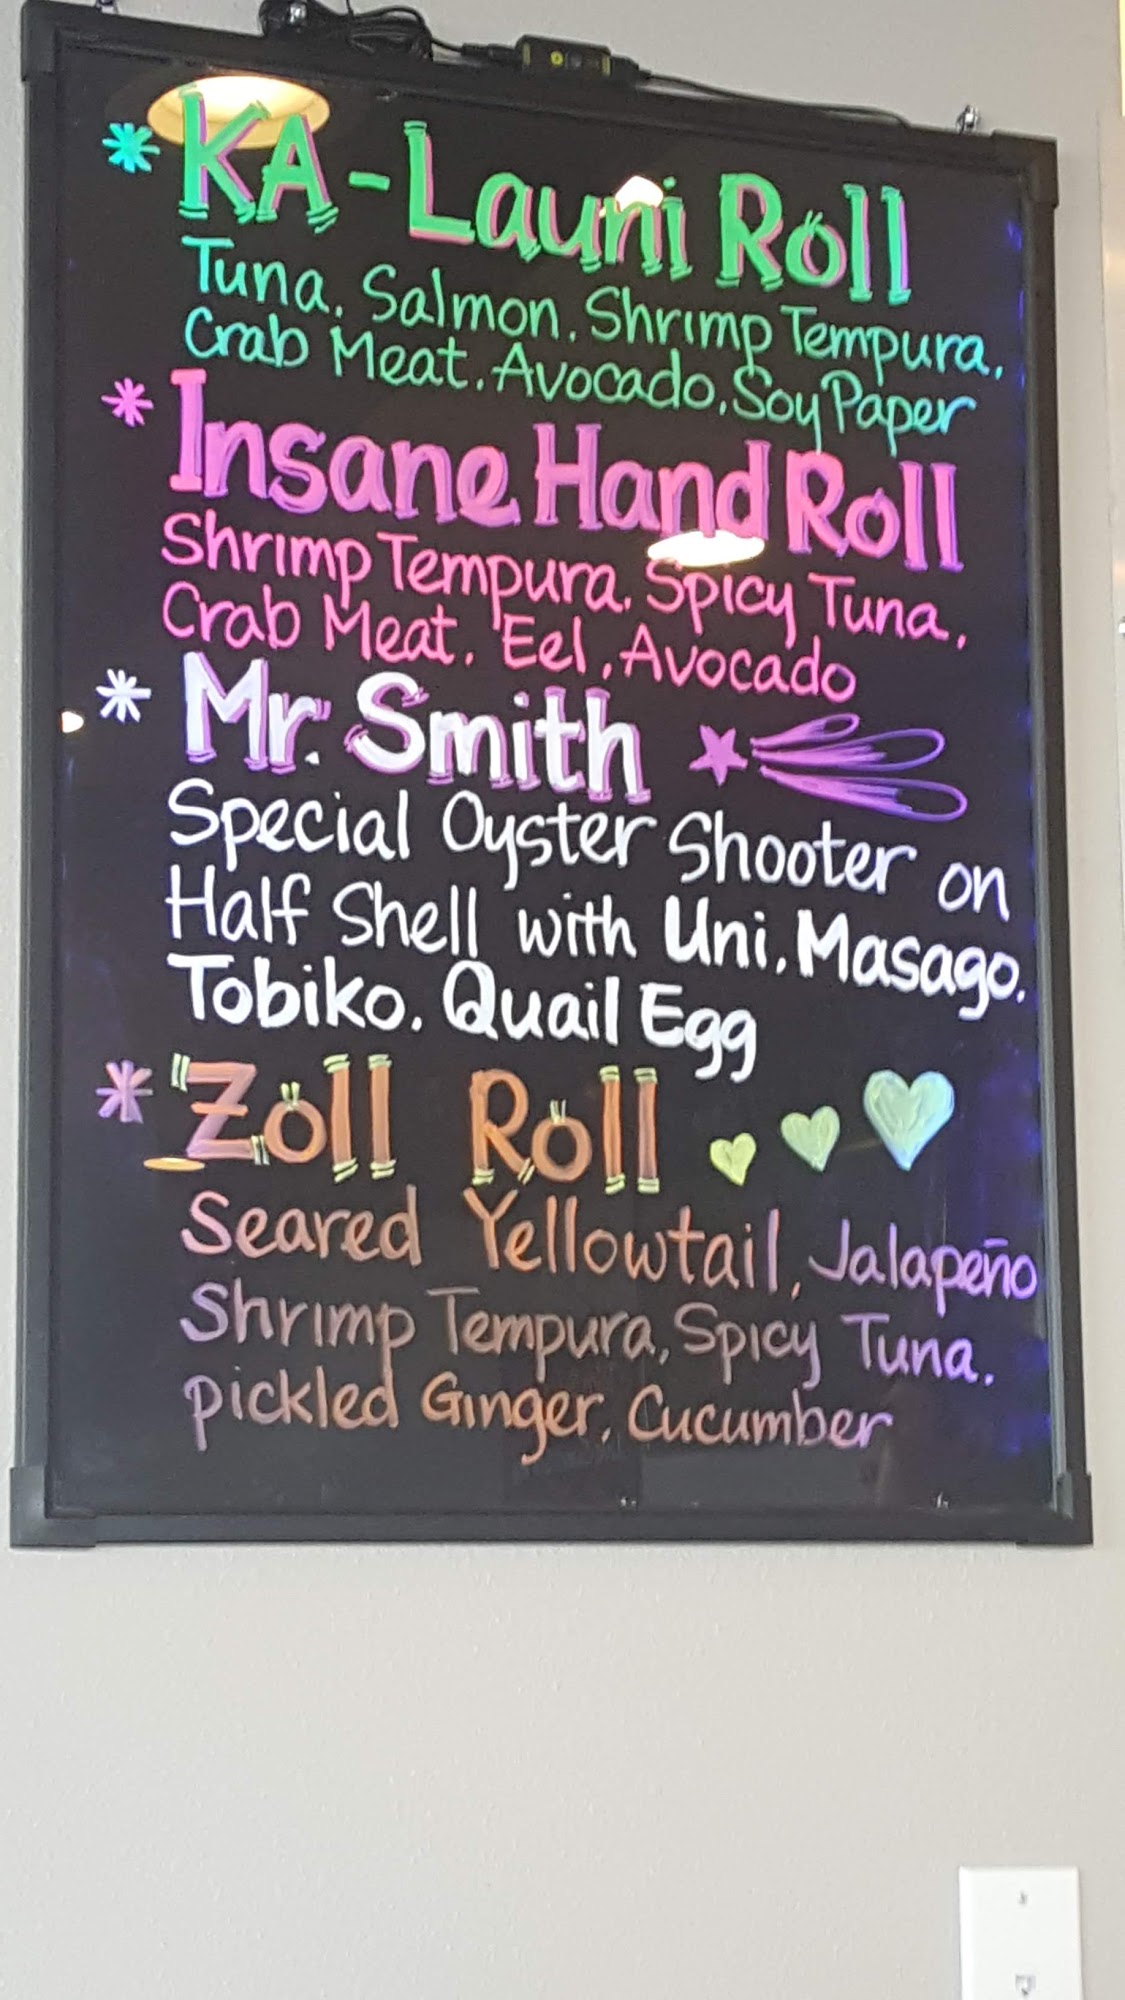 * KA-Launi Roll
Tuna. Salmon. Shrimp Tempura.
Crab Meat. Avocado. Soy Paper
* Insane Hand Roll
Shrimp Tempura. Spicy Tuna.
Crab Meat. Eel. Avocado
* Mr. Smith
Special Oyster Shooter on
Half Shell with Uni. Masago.
Tobiko. Quail Egg
* Zoll Roll
Seared Yellowtail, Jalapeño
Shrimp Tempura, Spicy Tuna.
Pickled Ginger, Cucumber